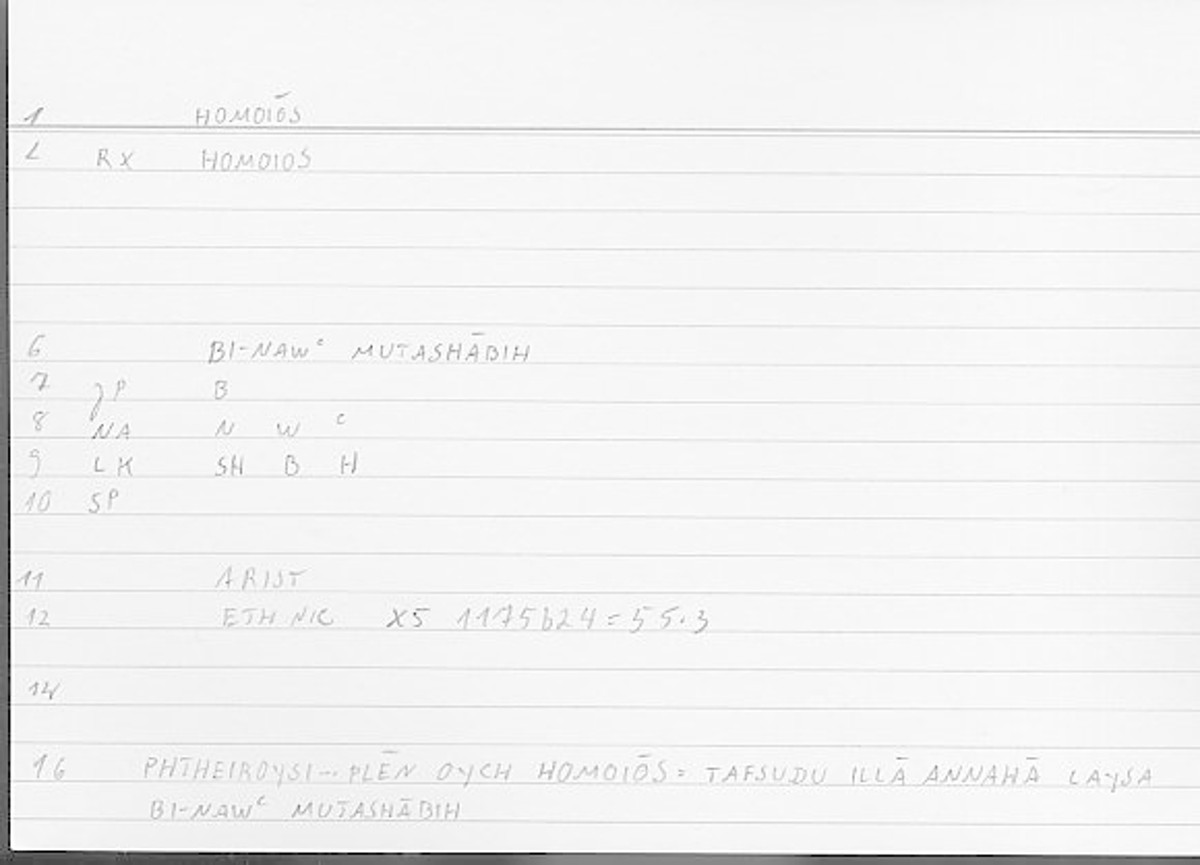 1 HOMOIŌS
2 RX HOMOIOS
6 BI-NAWᶜ MUTASHĀBIH
7 JP B
8 NA N W ᶜ
9 LK SH B H
10 SP
11 ARIST
12 ETH NIC X5 1175b24=55.3
14
16 PHTHEIROYSI... PLĒN OYCH HOMOIŌS = TAFSUDU ILLĀ ANNAHĀ LAYSA
BI-NAWᶜ MUTASHĀBIH